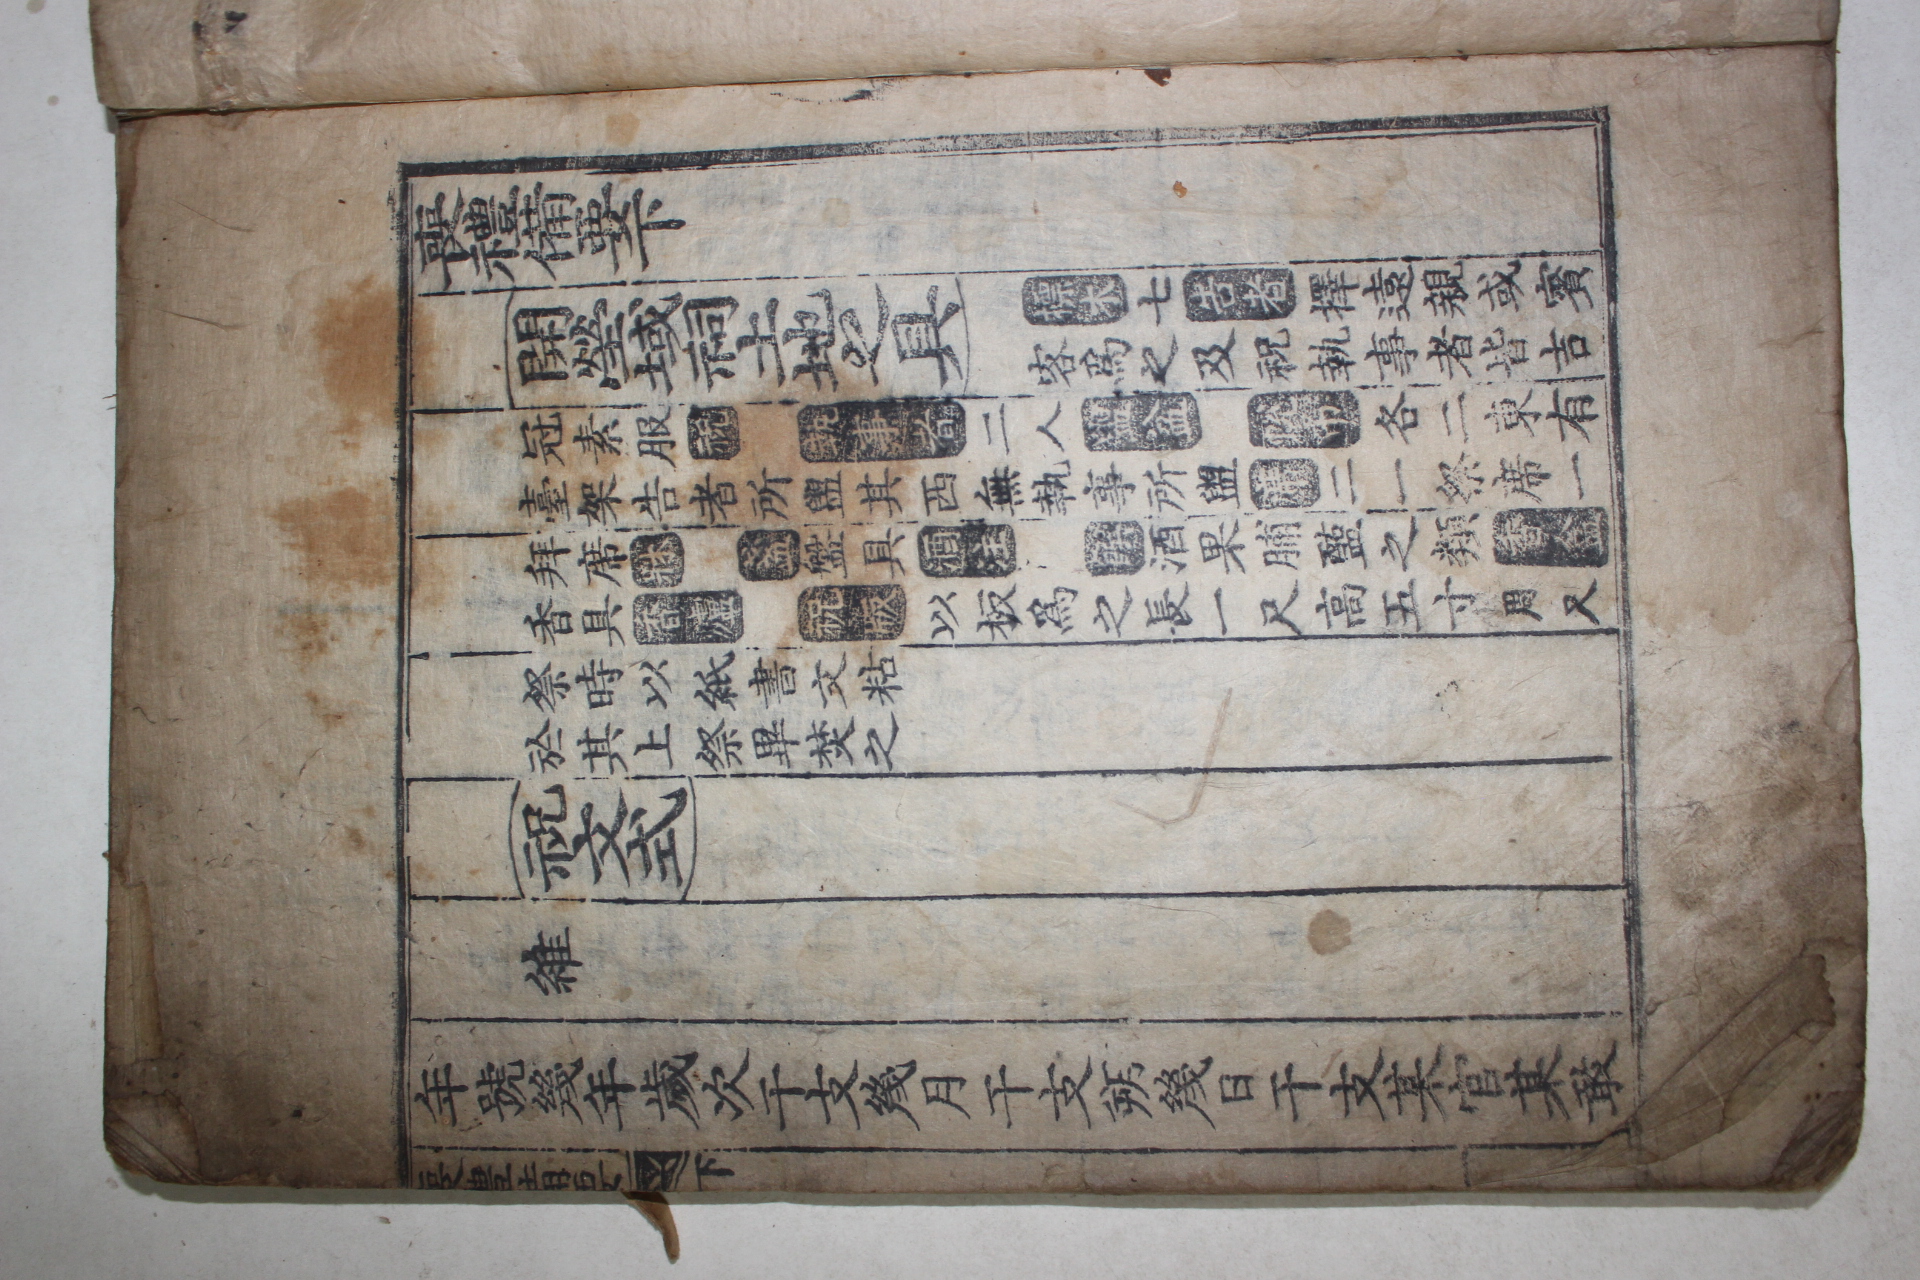 喪禮備要下
開塋域祠土地之具
標木七告者擇遠親或賓
客爲之及祝執事者皆吉
冠素服祝執事者二人盥盆帨巾各二東有
臺架告者所盥其西無執事所盥席二一祭席一
拜席盞盤具酒注饌酒果脯醢之類香盒
香具香爐祝版以板爲之長一尺高五寸周尺
祭時以紙書文粘
於其上祭畢焚之
祝文式
維
年號幾年歲次干支幾月干支朔幾日干支某官某敢
喪禮備要 下